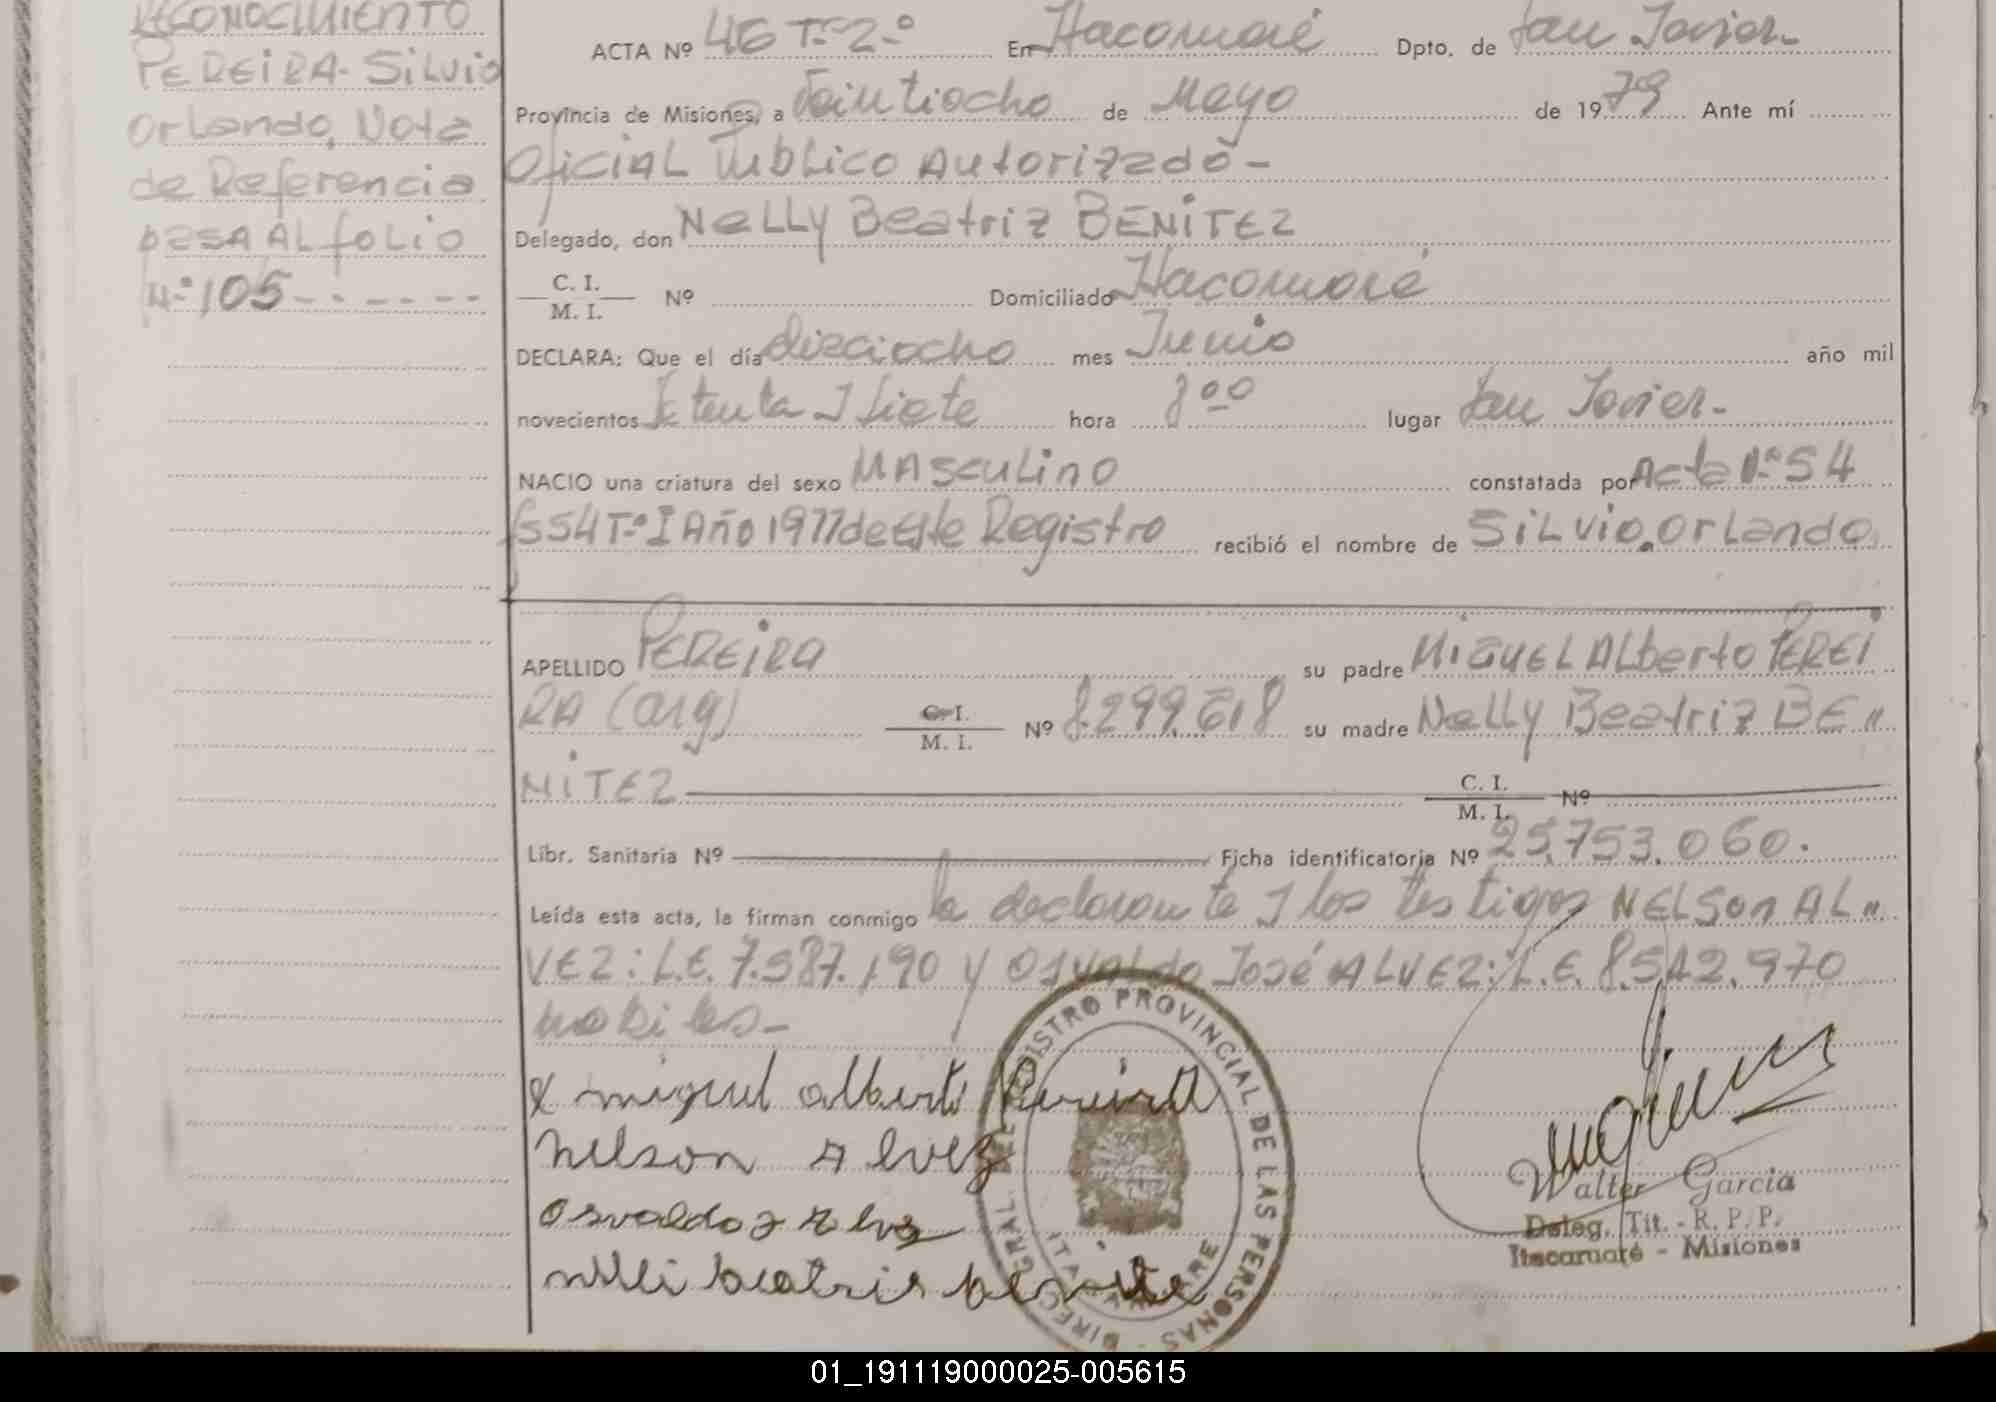 RECONOCIMIENTO
PEREIRA-SiLvio
Orlando, Nota
de Referencia
pasa AL folio
N.º 105------
ACTA Nº 46 T.º 2.º En Itacaruaré Dpto. de San Javier-
Provincia de Misiones, a Veintiocho de Mayo de 1979 Ante mí
Oficial Público Autorizado-
Delegado, don Nelly Beatriz BENITEZ
C. I.
M. I. Nº Domiciliado Itacaruaré
DECLARA: Que el día dieciocho mes Junio año mil
novecientos Setenta y Siete hora 8 00 lugar San Javier-
NACIO una criatura del sexo MASCULINO constatada por Acta Nº 54
fs 54 T.º I Año 1977 de Este Registro recibió el nombre de SiLvio Orlando
APELLIDO PEREIRA su padre MIGUEL ALberto PEREI
RA (arg) C. I. M. I. Nº 8.299.618 su madre Nelly Beatriz BE"
NITEZ C. I. M. I. Nº
Libr. Sanitaria Nº Ficha identificatoria Nº 25.753.060.
Leída esta acta, la firman conmigo la declarante y los testigos NELSON AL"
VEZ: L.E. 7.587.190 y OSVALDO José ALVEZ: L.E. 8.542.970
habiles-
x miguel alberto Pereira
nelson Alvez
Osvaldo J alvez
nelli beatris benite
DIREC. GRAL. DEL REGISTRO PROVINCIAL DE LAS PERSONAS -
ITACARUARE
Walter Garcia
Deleg. Tit. - R. P. P.
Itacaruaré - Misiones
01_191119000025-005615